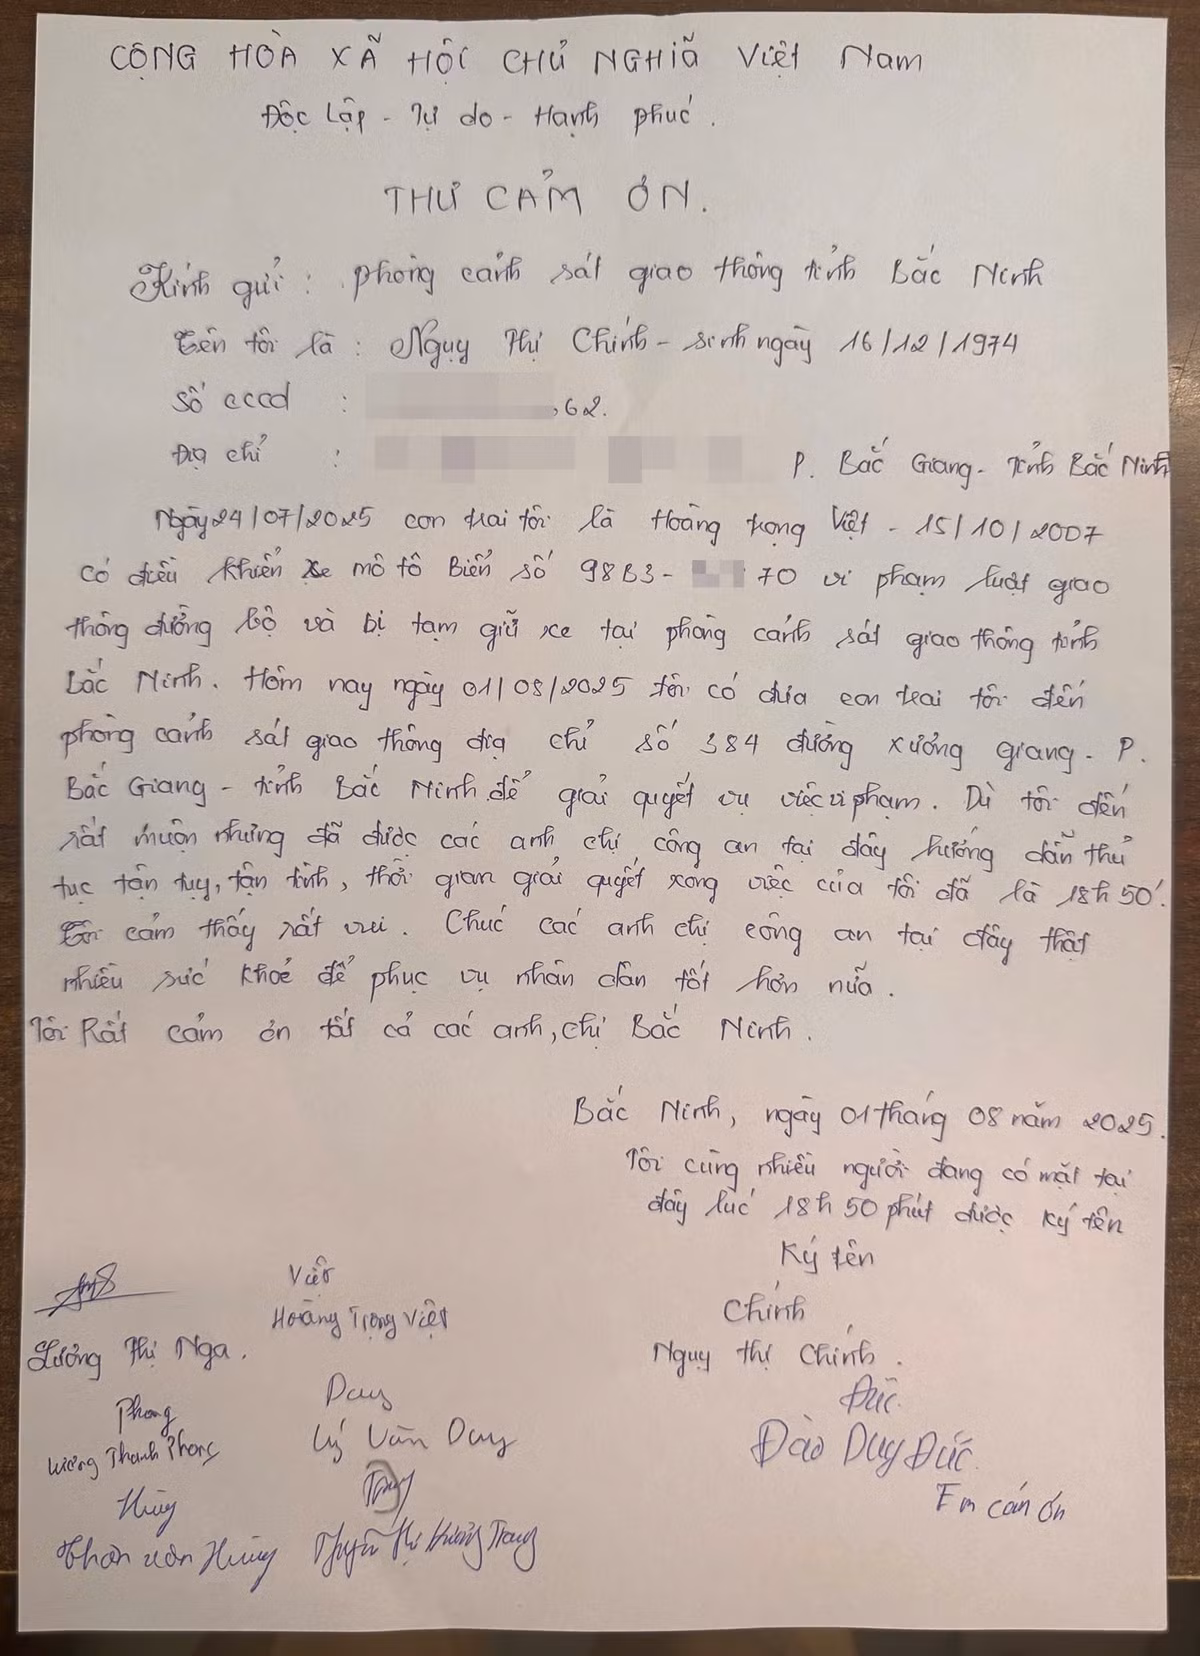 CỘNG HÒA XÃ HỘI CHỦ NGHIÃ Việt Nam
Độc Lập - Tự do - Hạnh phúc.
THƯ CẢM ƠN.
Kính gửi : phòng cảnh sát giao thông tỉnh Bắc Ninh
Tên tôi là : Ngụy Thị Chính - sinh ngày 16/12/1974
Số cccd : 62.
Địa chỉ : P. Bắc Giang - tỉnh Bắc Ninh
Ngày 24/07/2025 con trai tôi là Hoàng trọng Việt - 15/10/2007
Có điều khiển xe mô tô Biển số 98B3- 70 vi phạm luật giao
thông đường bộ và bị tạm giữ xe tại phòng cảnh sát giao thông tỉnh
Bắc Ninh. Hôm nay ngày 01/08/2025 tôi có đưa con trai tôi đến
phòng cảnh sát giao thông địa chỉ số 384 đường xương giang - P.
Bắc Giang - tỉnh Bắc Ninh để giải quyết vụ việc vi phạm. Dù tôi đến
rất muộn nhưng đã được các anh chị công an tại đây hướng dẫn thủ
tục tận tụy, tận tình, thời gian giải quyết xong việc của tôi đã là 18h50'.
Tôi cảm thấy rất vui. Chúc các anh chị công an tại đây thật
nhiều sức khoẻ để phục vụ nhân dân tốt hơn nữa.
Tôi Rất cảm ơn tất cả các anh, chị Bắc Ninh.
Bắc Ninh, ngày 01 tháng 08 năm 2025.
Tôi cùng nhiều người đang có mặt tại
đây lúc 18h 50 phút được ký tên
Ký tên
Việt
Hoàng Trọng Việt
Chính
Lương Thị Nga.
Ngụy thị Chính.
Phong
Lương Thanh Phong
Duy
Lý Văn Duy
Đức
Đào Duy Đức
Em cám ơn
Hùng
Thân văn Hùng
Thị Hương Trang